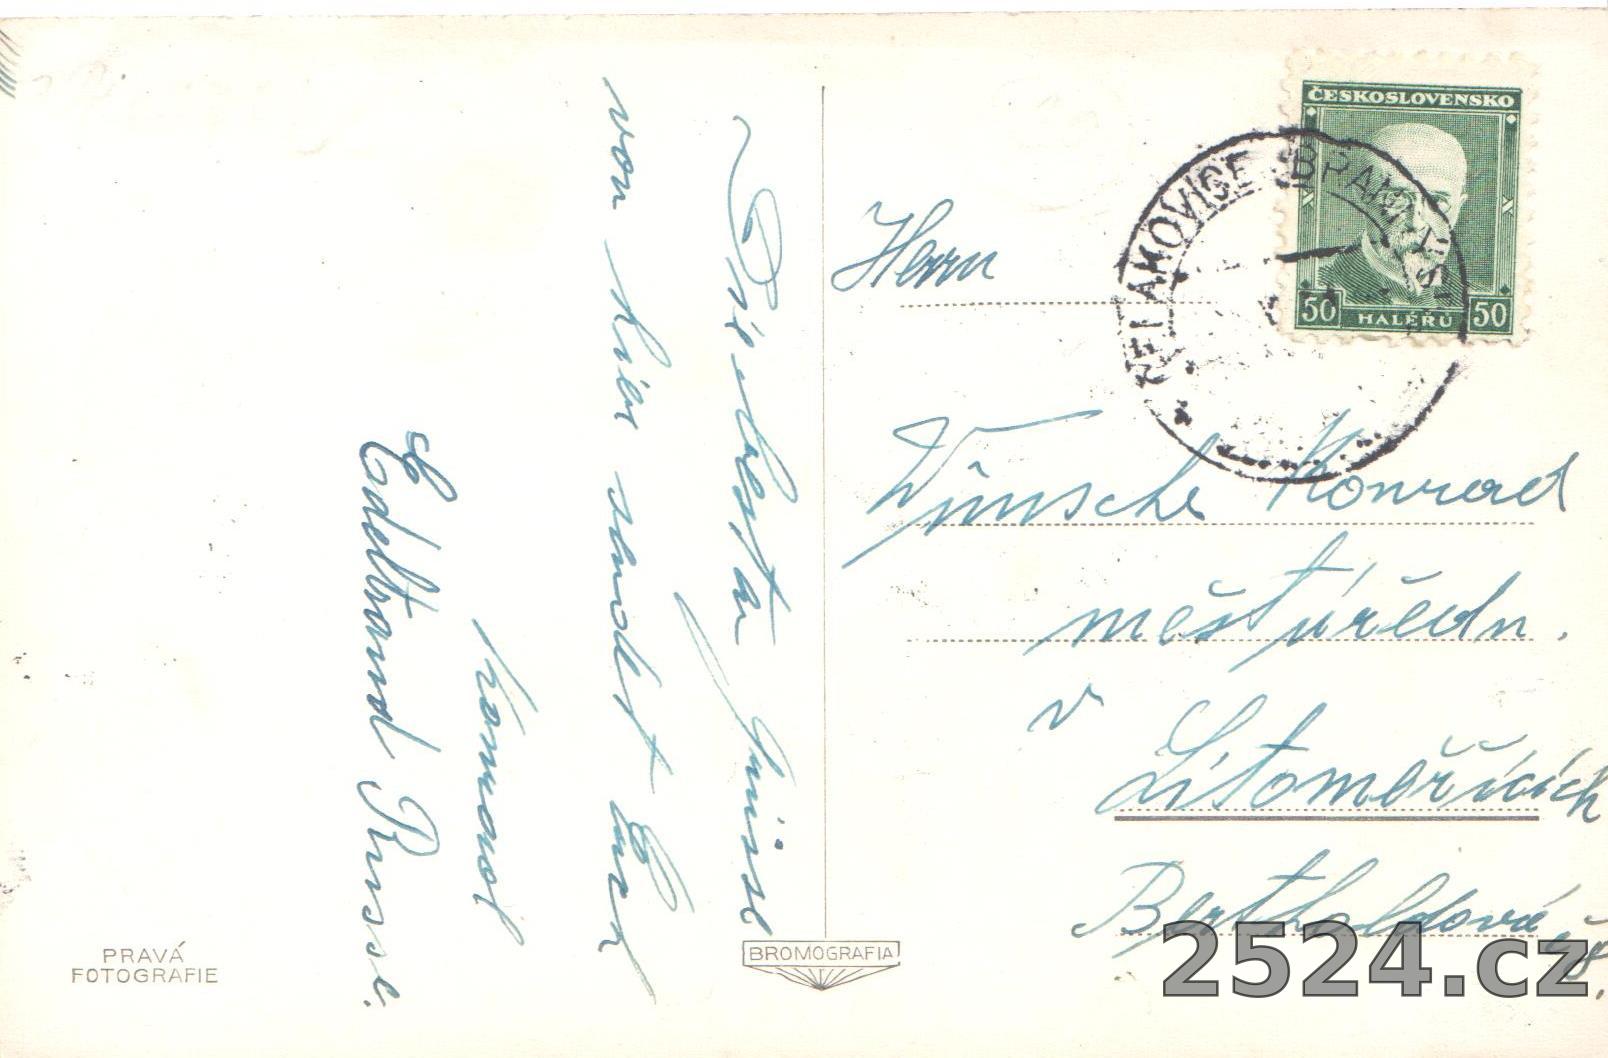 Die besten Grüsse
von hier sendet Euch
Konrad
Edeltraud Russe.
PRAVÁ
FOTOGRAFIE
BROMOGRAFIA
ČESKOSLOVENSKO
50 HALÉŘŮ 50
ČELAKOVICE
Herrn
Wünsche Konrad
měst úředn.
v
Litoměřicích
Bertholdova
2524.cz